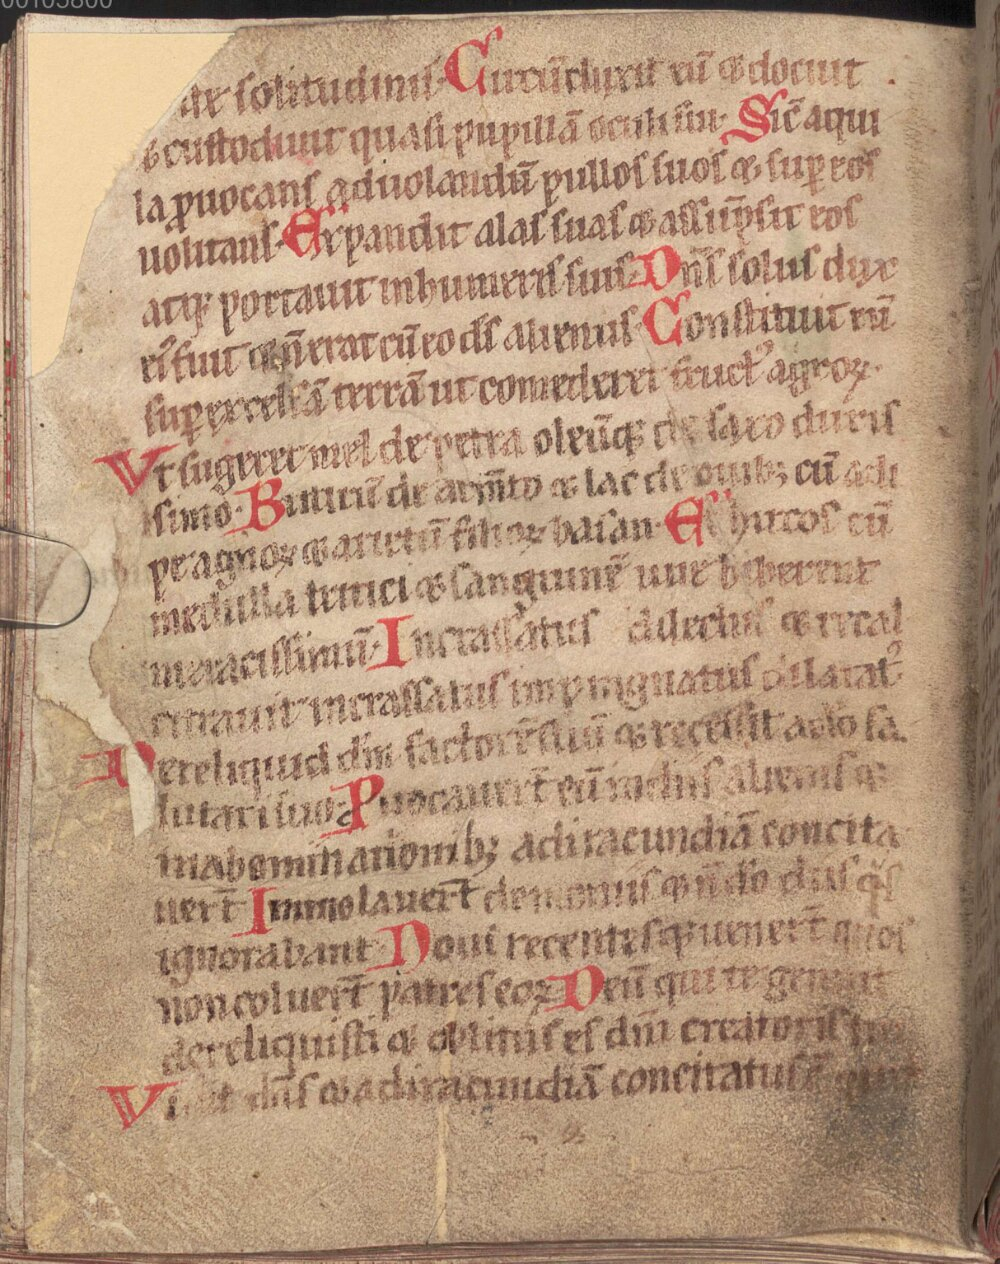 00105800
tæ solitudinis. Circũduxit eũ & docuit
& custodiuit quasi pupillã oculi sui. Sic̃ aqui
la ꝓuocans aduolandũ pullos suos & suꝑ eos
uolitans. Expandit alas suas & assũpsit eos
atq; portauit in humeris suis. Dñs solus dux
ei᷒ fuit & ñ erat cũ eo ds̃ alienus. Constituit eũ
suꝑ excelsã terrã ut comederet fruct᷒ agroꝝ.
Vt sugeret mel de petra oleũq; de saxo duris
simo. Butirũ de arm̃to & lac de ouib; cũ adi
pe agnoꝝ & arietũ filioꝝ basan. Et hircos cũ
medulla tritici & sanguinẽ uue biberent
meracissimũ. Incrassatus dilectus & recal
citrauit incrassatus impinguatus dilatat᷒
Dereliquid dm̃ factorẽ suũ & recessit a deo sa
lutari suo. Puocauert̃ eũ in diis alienis &
in abominationib; ad iracundiã concita
uert̃ Immolauert̃ demoniis & ñ do̅ diis q̃s
ignorabant Noui recentes q; uenert̃ quos
non coluert̃ patres eoꝝ Deũ qui te genuit
dereliquisti & oblitus es dm̃ creatoris tui
Vidit dñs & ad iracundiã concitatus ẽ quia